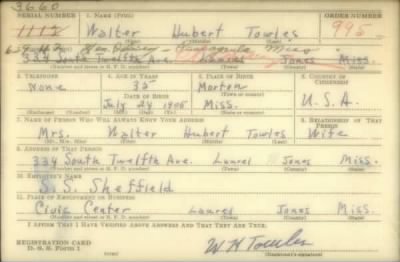 3660
SERIAL NUMBER 1. NAME (Print) ORDER NUMBER
1112 Walter Hubert Towles 995
Pascagoula Miss
334 South Twelfth Ave. Laurel Jones Miss.
3. TELEPHONE 4. AGE IN YEARS 5. PLACE OF BIRTH 6. COUNTRY OF CITIZENSHIP
None 35 Morton U.S.A.
DATE OF BIRTH (Town or county)
July 24 1905 Miss.
(Mo.) (Day) (Yr.) (State or country)
7. NAME OF PERSON WHO WILL ALWAYS KNOW YOUR ADDRESS 8. RELATIONSHIP OF THAT PERSON
Mrs. Walter Hubert Towles Wife
(Mr., Mrs., Miss) (First) (Middle) (Last)
9. ADDRESS OF THAT PERSON
334 South Twelfth Ave. Laurel Jones Miss.
(Number and street or R. F. D. number) (Town) (County) (State)
10. EMPLOYER'S NAME
S. S. Sheffield
11. PLACE OF EMPLOYMENT OR BUSINESS
Civic Center Laurel Jones Miss.
(Number and street or R. F. D. number) (Town) (County) (State)
I AFFIRM THAT I HAVE VERIFIED ABOVE ANSWERS AND THAT THEY ARE TRUE.
REGISTRATION CARD
D. S. S. Form 1 W H Towles
(Registrant's signature)